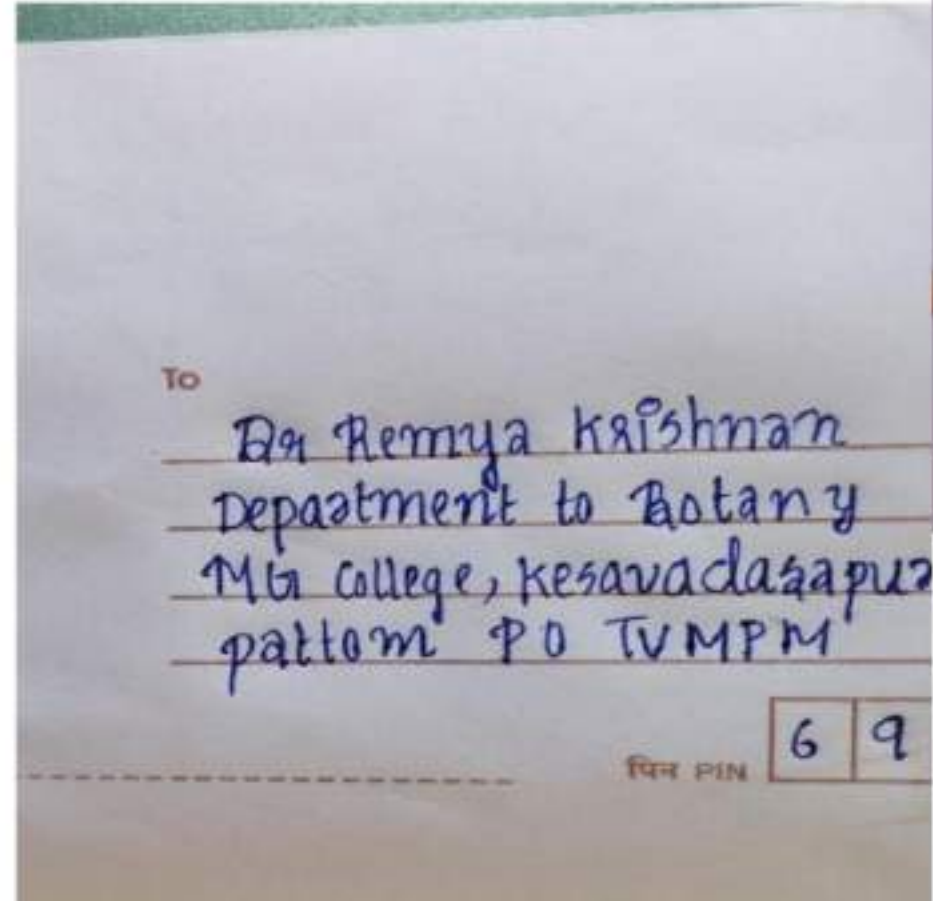 To
Dr Remya Krishnan
Department to Botany
MG College, Kesavadasapur
pattom PO TVMPM
पिन PIN 6 9